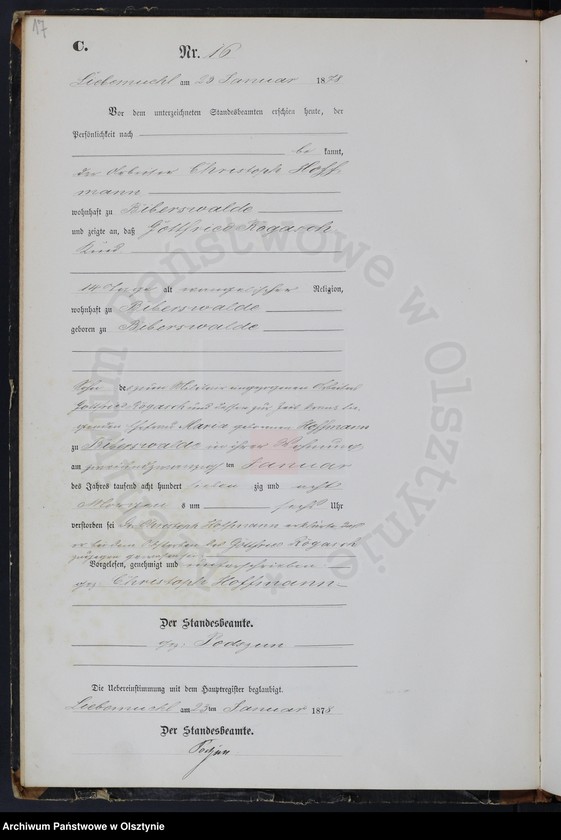 17
C.
Nr. 16
Liebemuehl am 23 Januar 1878
Vor dem unterzeichneten Standesbeamten erschien heute, der
Persönlichkeit nach
be kannt,
der Arbeiter Christoph Hoff
mann
wohnhaft zu Biberswalde
und zeigte an, daß Gottfried Rogasch
Kind
14 Tage alt evangelischer Religion,
wohnhaft zu Biberswalde
geboren zu Biberswalde
Sohn des zum Militair eingezogenen Arbeiters
Gottfried Rogasch und dessen zur Zeit
Ehefrau Maria geborenen Hoffmann
zu Biberswalde in ihrer Wohnung
am zweiundzwanzigsten Januar
des Jahres tausend acht hundert sieben zig und acht
Morgens um sechs Uhr
verstorben sei der Christoph Hoffmann erklärte daß
er bei dem Absterben des Gottfried Rogasch
zugegen gewesen sei
Vorgelesen, genehmigt und unterschrieben
gez. Christoph Hoffmann
Der Standesbeamte.
gez.
Die Uebereinstimmung mit dem Hauptregister beglaubigt.
Liebemuehl am 23ten Januar 1878
Der Standesbeamte.
Archiwum Państwowe w Olsztynie
Archiwum Państwowe w Olsztynie